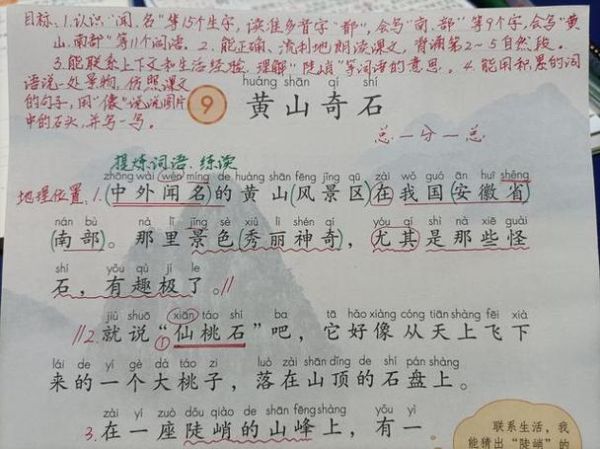 目标、1.认识"闻、名"等15个生字,读准多音字"都",会写"南、部"等9个字,会写"黄
山、南部"等11个词语。2.能正确、流利地朗读课文,背诵第2~5自然段。
3.能联系上下文和生活经验,理解"陡峭"等词语的意思。4.能用积累的词
语说一处景物,仿照课文
的句子,用"像"说说图片
中的石头,并写一写。
huáng shān qí shí
9 黄山奇石
总—分—总
提炼词语、练读
zhōng wài wén míng de huáng shān fēng jǐng qū zài wǒ guó ān huī shěng
地理位置 1.(中外闻名)的黄山(风景区)在我国(安徽省)
nán bù nà lǐ jǐng sè xiù lì shén qí yóu qí shì nà xiē guài
(南部)。那里景色(秀丽神奇),尤其是那些怪
shí yǒu qù jí le
石,有趣极了。//
jiù shuō xiān táo shí ba tā hǎo xiàng cóng tiān shàng fēi xià
//2.就说"①仙桃石"吧,它好像从天上飞下
lái de yí gè dà táo zi luò zài shān dǐng de shí pán shàng
来的一个大桃子,落在山顶的石盘上。
zài yí zuò dǒu qiào de shān fēng shàng yǒu yì
3.在一座陡峭的山峰上,有一
联系生活,我
能猜出"陡峭"的